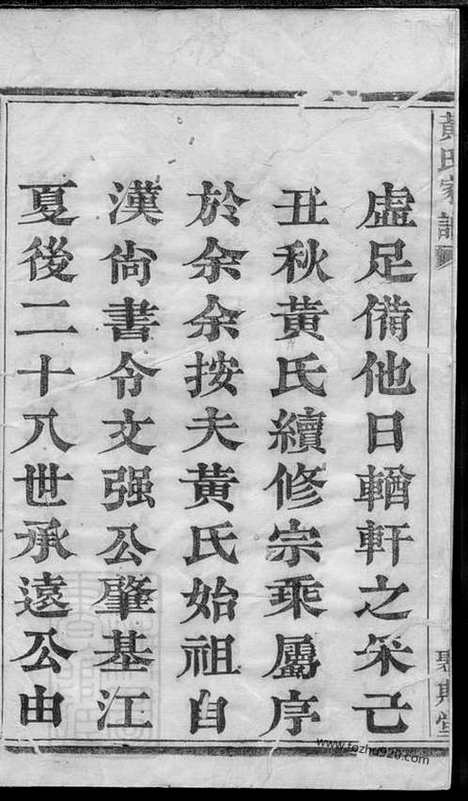 黃氏家譜
虛足備他日輶軒之采己
丑秋黃氏續修宗乘屬序
於余余按夫黃氏始祖自
漢尚書令文强公肇基江
夏後二十八世承遠公由
www.fozhu920.com